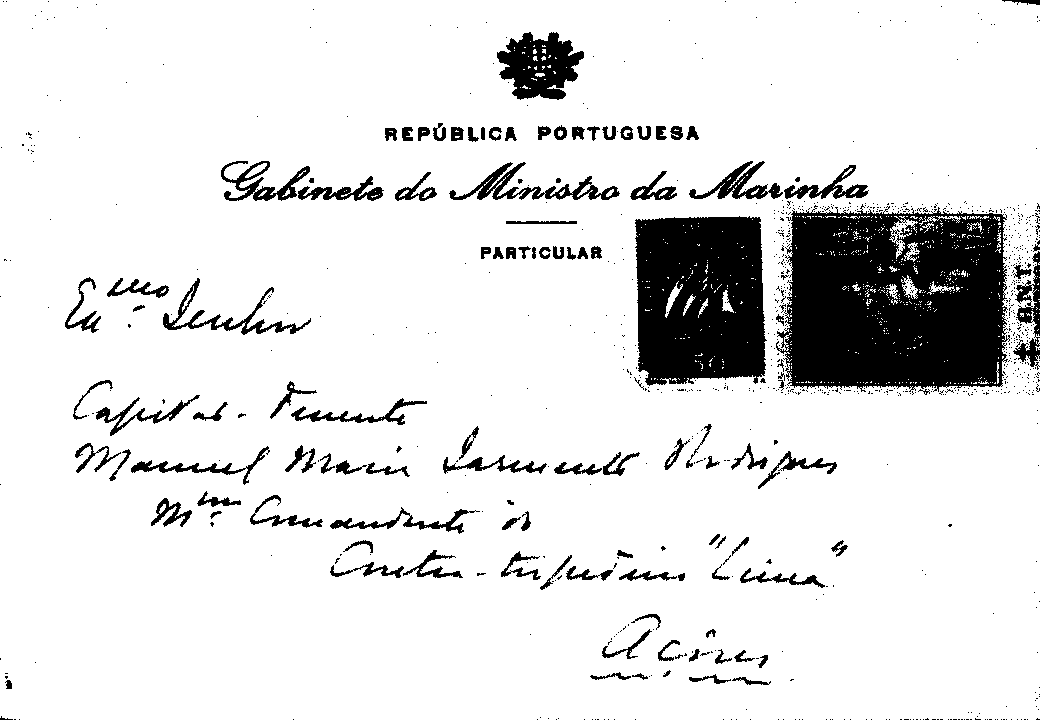 REPÚBLICA PORTUGUESA
Gabinete do Ministro da Marinha
PARTICULAR
50
B.N.T.
Exmo. Senhor
Capitão-Tenente
Manuel Maria Sarmento Rodrigues
Mmo. Comandante do
Contra-torpedeiro "Lima"
Açôres